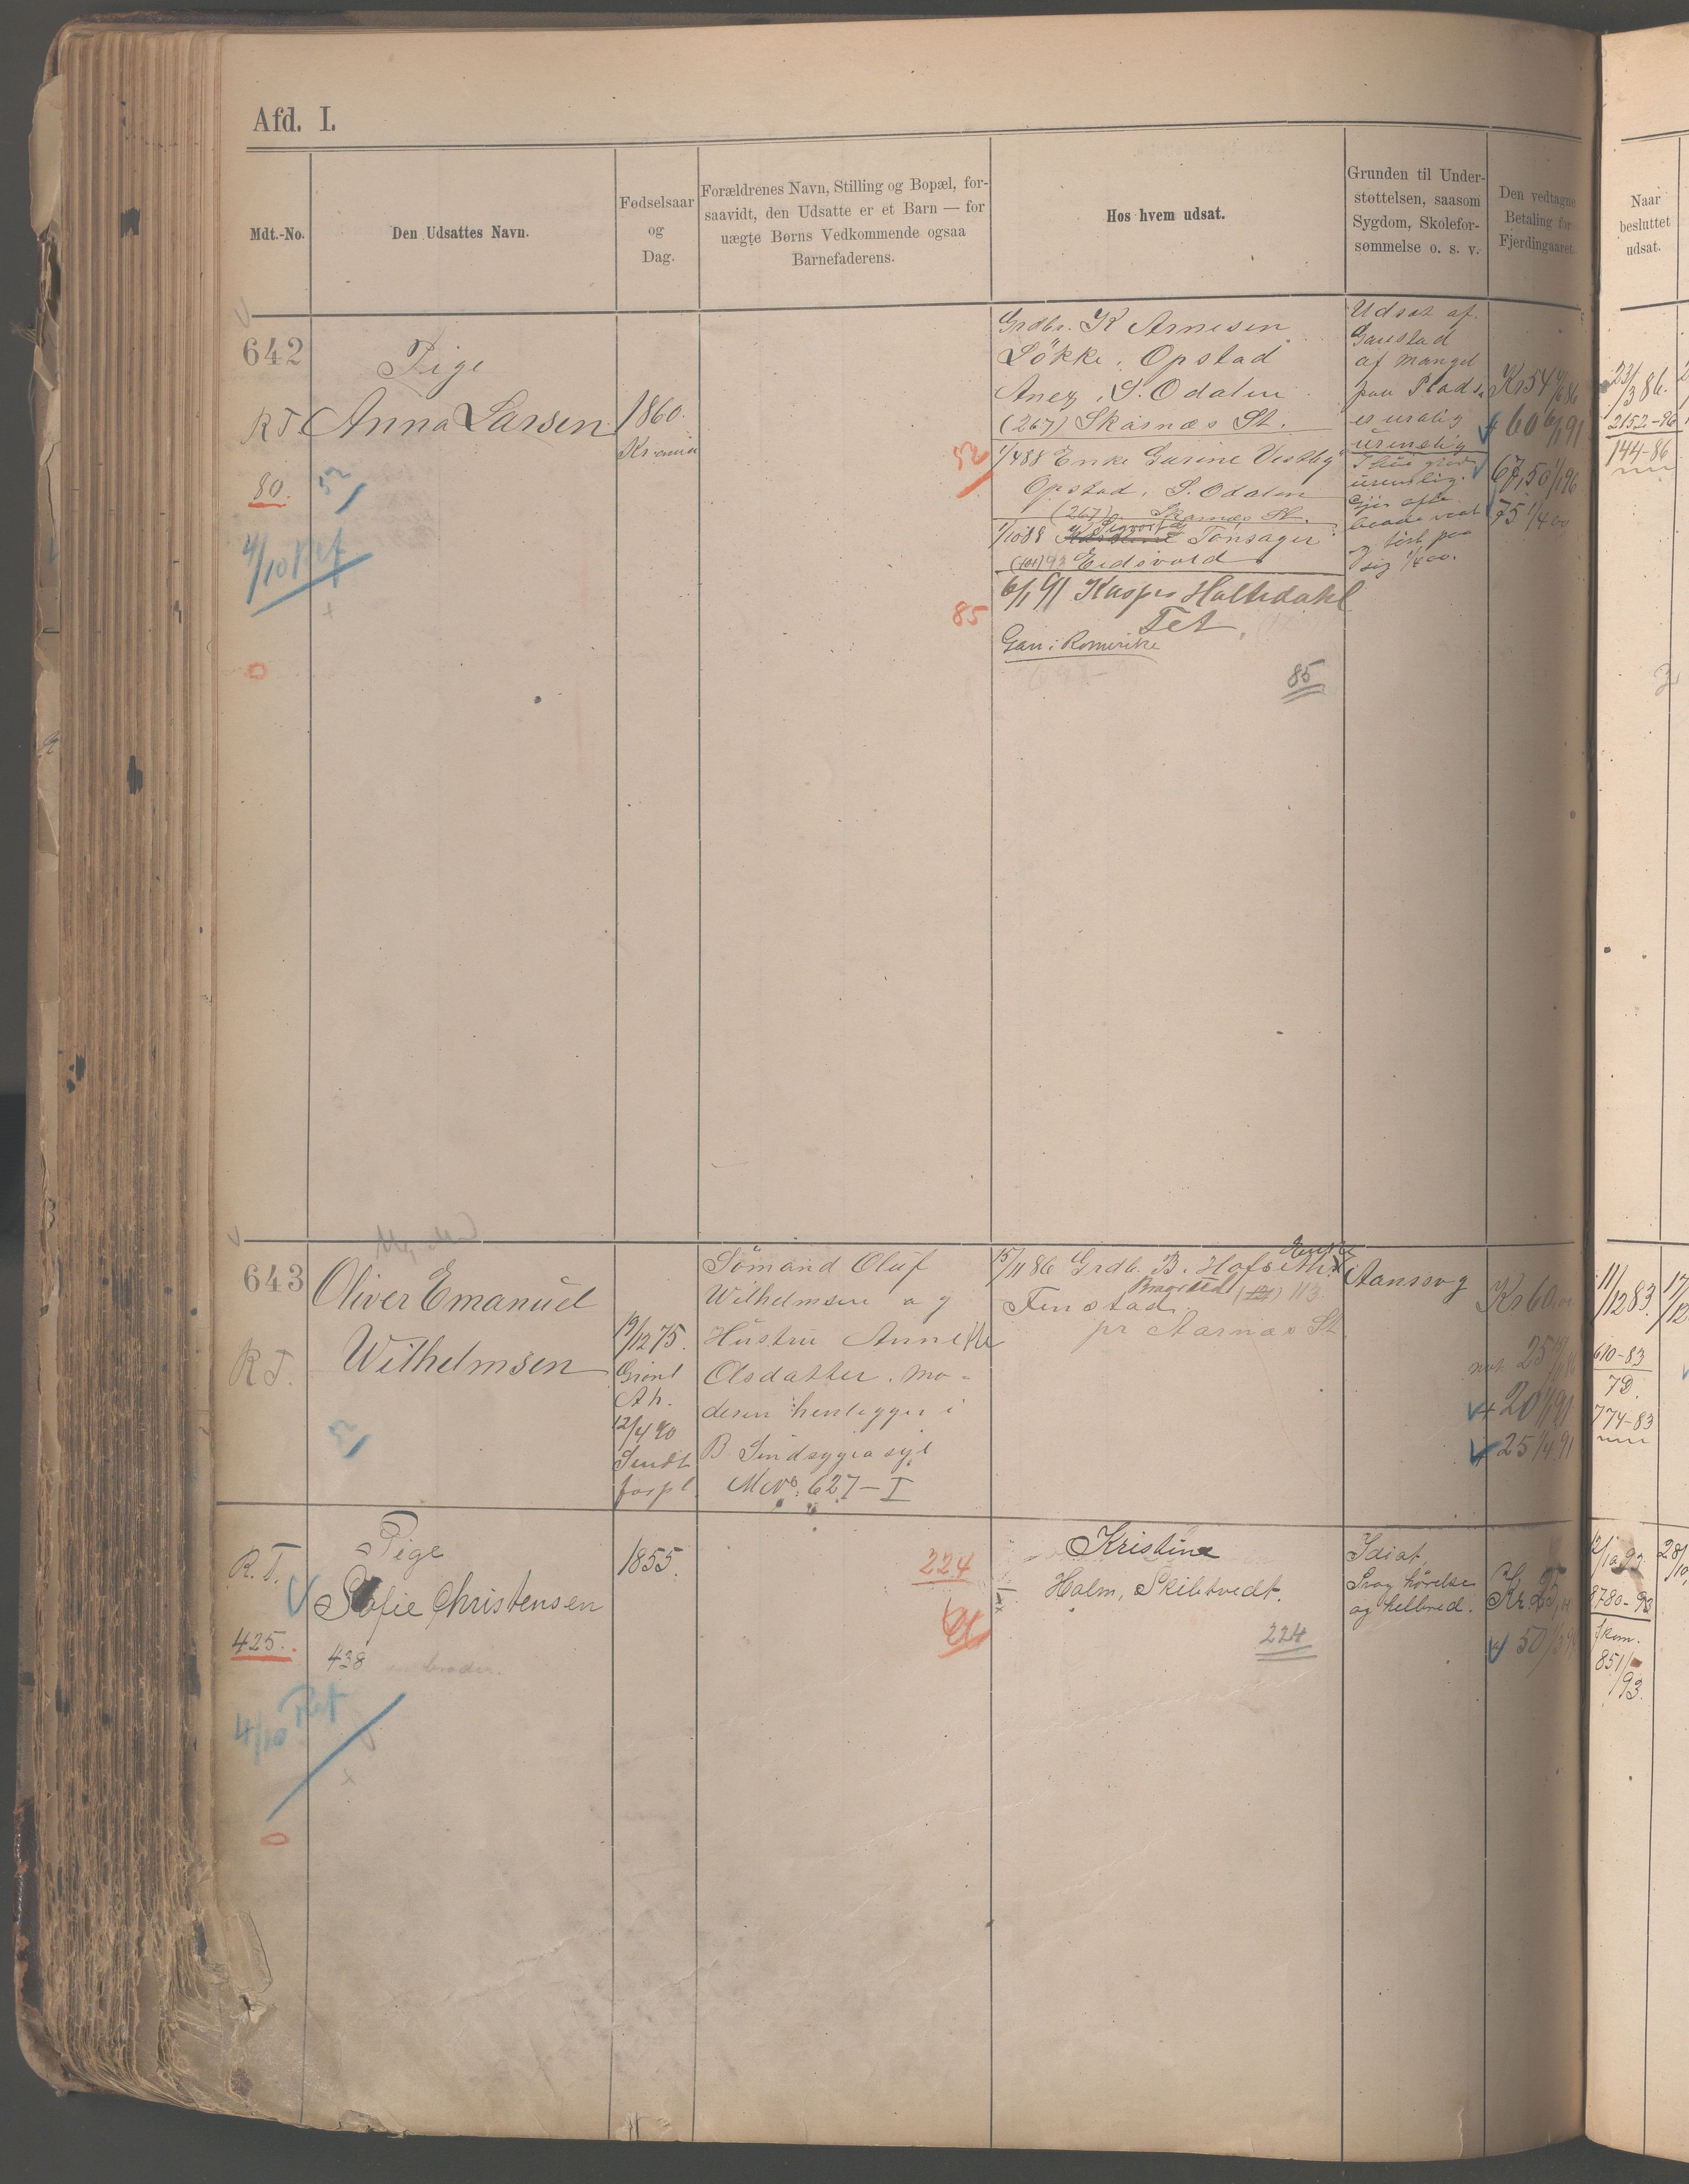 Afd. I.
Mdt.-No.
Den Udsattes Navn.
Fødselsaar
og
Dag.
Forældrenes Navn, Stilling og Bopæl, for-
saavidt, den Udsatte er et Barn — for
uægte Børns Vedkommende ogsaa
Barnefaderens.
Hos hvem udsat.
Grunden til Under-
støttelsen, saasom
Sygdom, Skolefor-
sømmelse o. s. v.
Den vedtagne
Betaling for
Fjerdingaaret.
Naar
besluttet
udsat.
642
Pige
RT Anna Larsen
80.
52
4/10 Ref
0
1860.
Kr.ania
Grdbr. K Arnesen
Løkke, Opstad
Anex, S. Odalen
(267) Skarnæs St.
52
1/4 88 Enke Gurine Vestby
Opstad, S. Odalen
(267) Skarnæs St.
1/10 88 Tonsager
93 Eidsvold
6/1 91 Kasper Holtedahl
85
Fet
Gan i Romerike
85
Udsat af
Gaustad
af Mangel
paa Plads
er urolig
urenslig
urenslig.
sig 1/4 00.
Kr 54
60 6/1 91
67,50 1/1 96
75 1/4 00
23/3 86.
2152-86
144-86
643
Oliver Emanuel
Wilhelmsen
RT.
52
19/12 75.
Grønl
Ah.
12/4 90
Sømand Oluf
Wilhelmsen og
Hustru Annette
Olsdatter. Mo-
deren henligger i
B Sindsygeasyl
MNo. 627-I
15/11 86 Grdb. B. Hofseth
Enke
Fenstad
113
pr Aarnæs St.
Aanssvag
Kr 60
25
20 1/1 91
25 1/4 91
11/12 83.
610-83
79.
774-83
R.T.
Pige
Sofie Christensen
425.
438
broder.
4/10 Ref
0
1855.
224
Kristine
Holm, Skibtvedt.
224
Idiot,
Svag hørelse
og helbred.
Kr. 25,
50
8780-93
851/93.